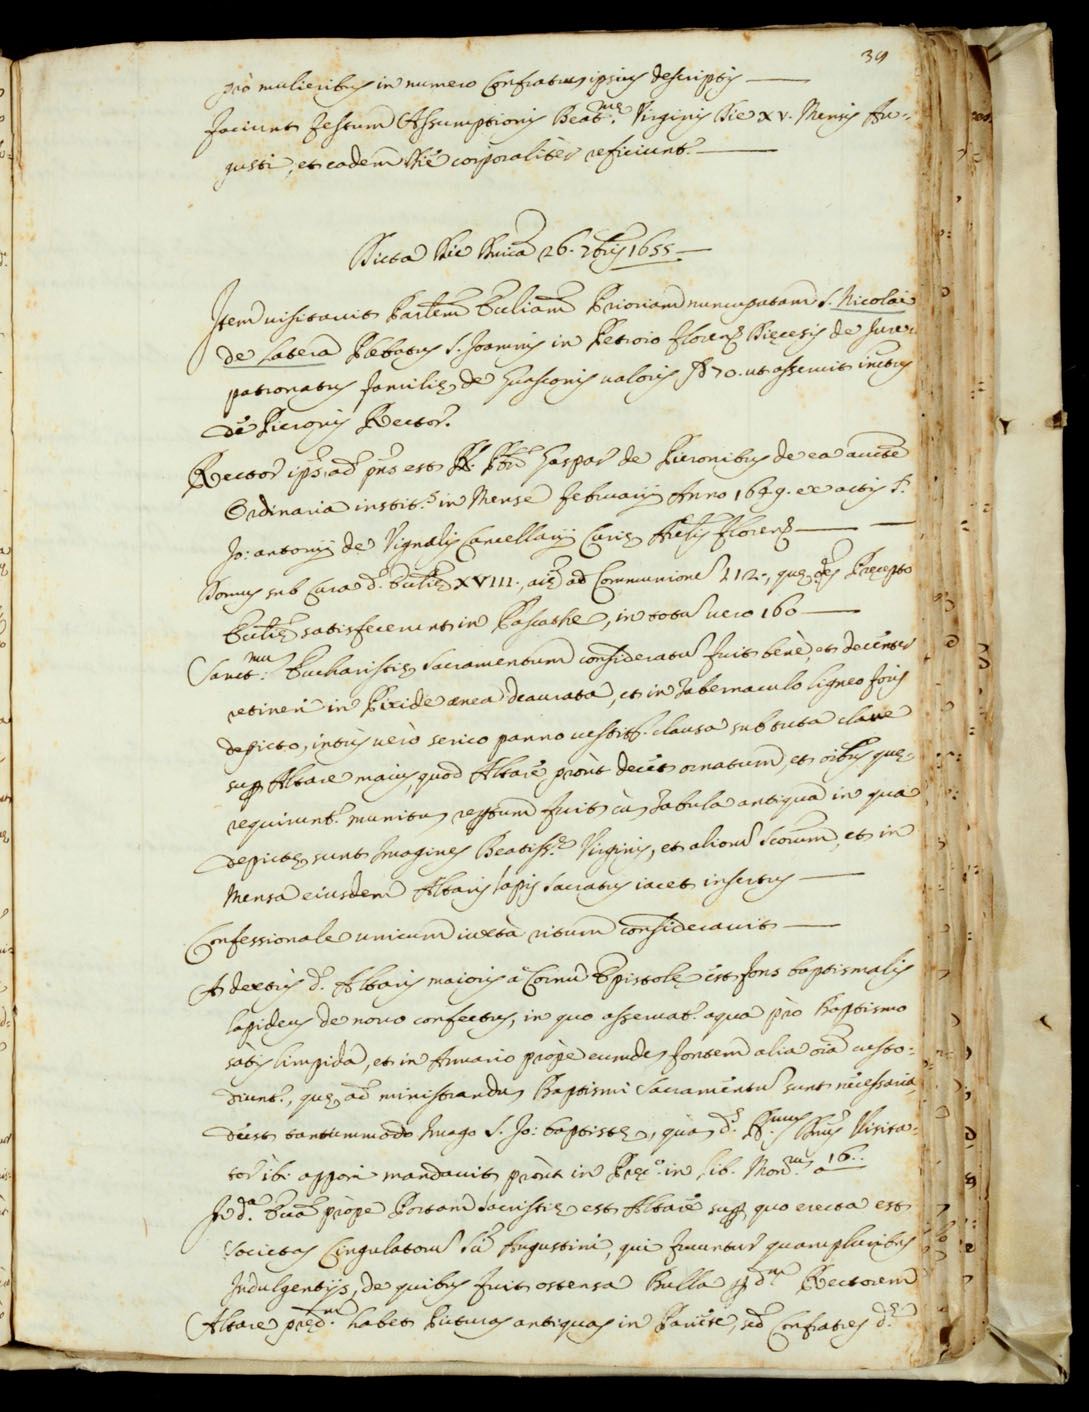 39
prò mulieribus in numero Confratrum ipsius descriptis
faciunt festum Assumptionis Beat.mę Virginis Die XV. Mensis Au-
gusti, et eadem die corporalitèr reficiunt.r
Dicta die 26. 7bris 1655
Item visitavit Prioriam nuncupatam S. Nicolai
de Latera Plebatus S. Joannis in Petroio floren. Dięcesis de Jure
patronatus familię de Guasconis valoris 70. ut asseruit
de Pieronis Rector.
Rector ips. ad prns est Gaspar de Pieronibus de ea
Ordinaria instit.s in Mense Februarij Anno 1649. ex actis S.
Jo: antonij de Vignalis Cancellarij Curię floren.
Domus sub Cura d. XVIII., ad Communionē 112., quę Pręcepto
satisfecerunt in Paschate, in totū vero 160
Sanct.mu Eucharistię Sacramentum consideratū fuit benè, et decēter
retineri in Pixide ęnea deaurata, et in Tabernaculo ligneo foris
depicto, intùs verò serico panno clausa sub tuta clave
sup Altare maius, quod Altare prout decet ornatum, et oībus quę
requirunt.r munitum fuit cū Tabula antiqua in qua
depictę sunt Imagines Beatiss.ę Virginis, et aliorū Scorum, et in
Mensa eiusdem Altaris lapis Sacratus iacet insertus
Confessionale unicum iuxta ritum consideravit
A dextris d. Altaris maioris à Cornu Epistolę est fons baptismalis
lapideus de novo confectus, in quo asservat.r aqua prò Baptismo
satis limpida, et in Armario propè eumdem fontem alia oīa custo-
diunt.r, quę ad ministrandum Baptismi Sacramentū sunt necessaria,
deest tantummodo Imago S. Jo: baptistę, quam d. Visita-
tor ibi apponi mandavit prout in Pręc.o in lib. 16.
In d.a propè Portam Sacristię est Altare sup quo erecta est
Societas Cingulatorū Augustini, qui fruuntur quampluribus
Indulgentijs, de quibus fuit ostensa Bulla p d.m Rectorem
Altare pręd.m habet Picturas antiquas in Pariete, sed Confratres d.ę